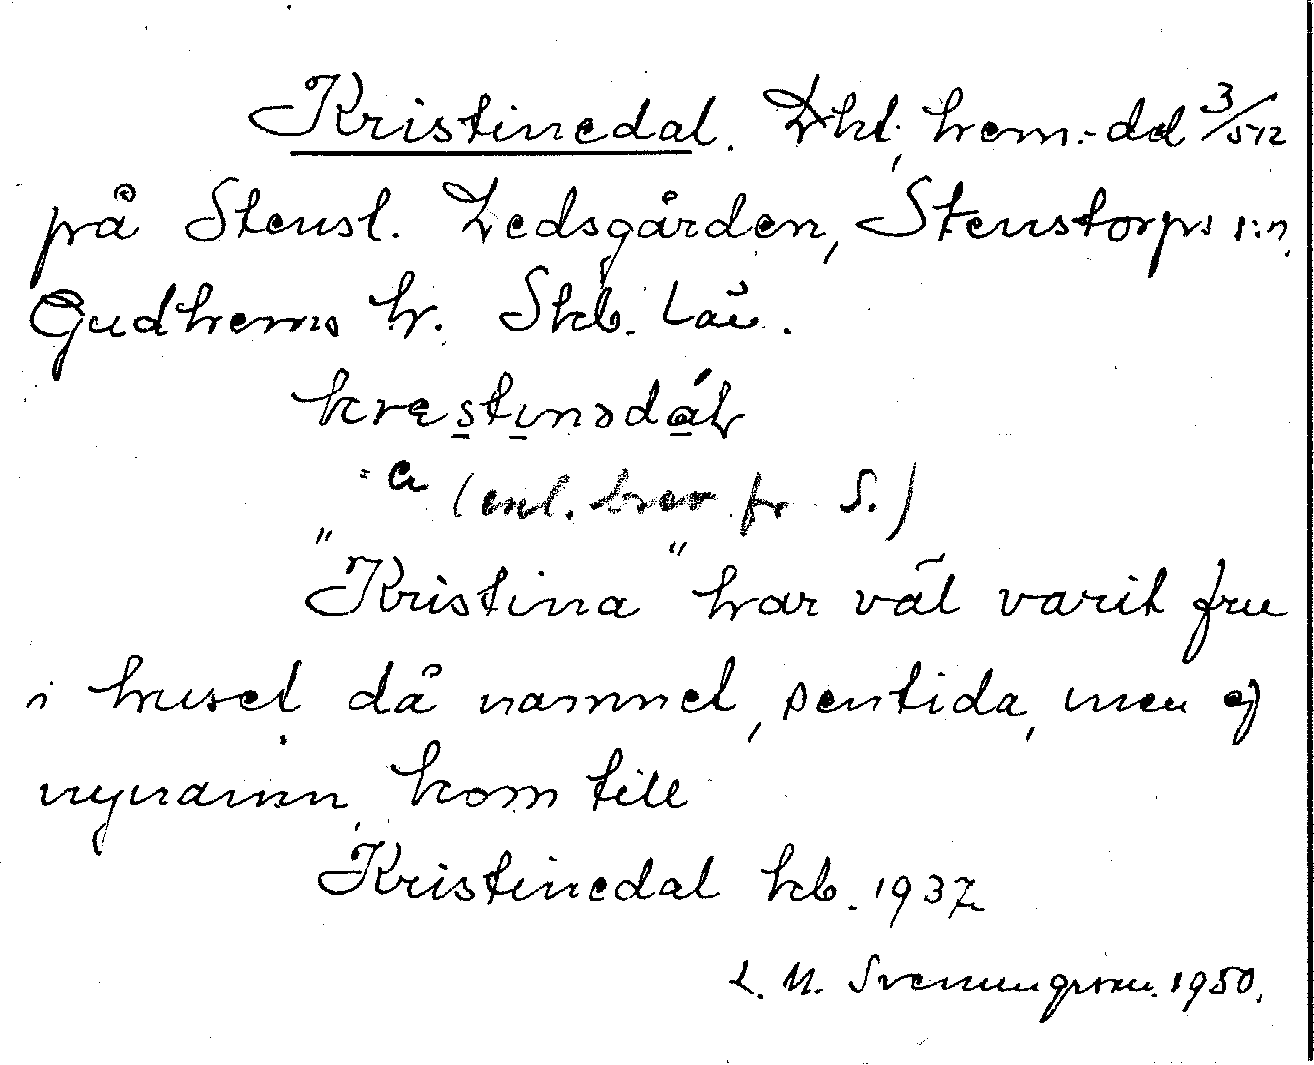 Kristinedal. Lht, hem.-del 3/572
på Stensl. Ledsgården, Stenstorps s:n,
Gudhems hr. Skb. län.
kreștı̣nsdál
" a (enl. brev fr S.)
"Kristina" har väl varit fru
i huset, då namnet, sentida, men ej
nynamn, kom till
Kristinedal kb. 1937
S. 1950.